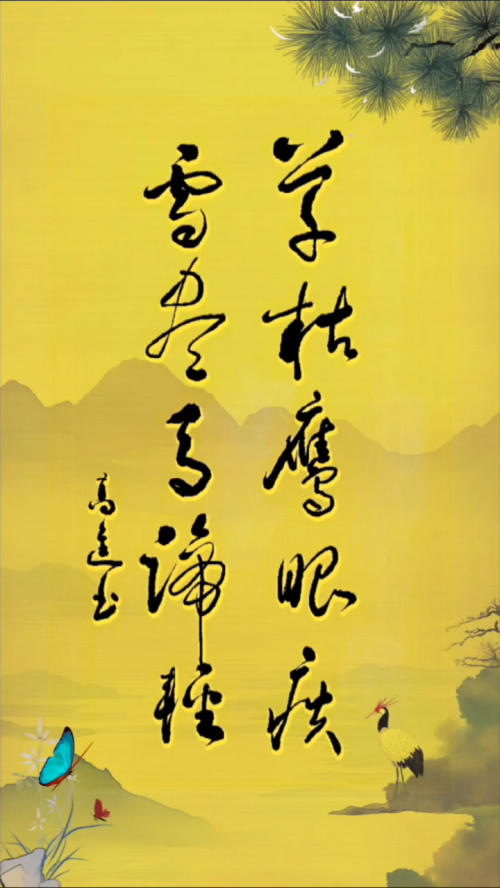 草枯鹰眼疾
雪尽马蹄轻
高